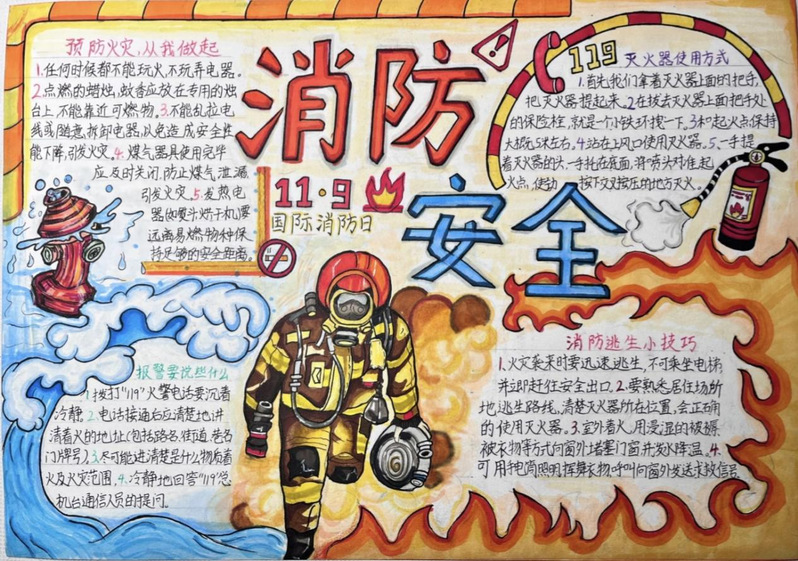 消防
安全
11·9
国际消防日
预防火灾，从我做起
1.任何时候都不能玩火，不玩弄电器。
2.点燃的蜡烛，蚊香应放在专用的烛
台上，不能靠近可燃物。3.不能乱拉电
线或随意拆卸电器，以免造成安全性
能下降，引发火灾。4.煤气器具使用完毕
应及时关闭，防止煤气泄漏
引发火灾。5.发热电
器(如暖头烘干机)要
远离易燃物和保
持足够的安全距离。
119灭火器使用方式
1.首先我们拿着灭火器上面的把手，
把灭火器提起来。2.在拔去灭火器上面把手处
的保险栓，就是一个小铁环拽一下。3.和起火点保持
大概元5米左右。4.站在上风口使用灭火器。5.一手提
着灭火器的头，一手托在底面，将喷头对住起
火点，使劲按下交叉按压的地方灭火。
报警要说些什么
1.拨打"119"火警电话要沉着
冷静。2.电话接通后应清楚地讲
清着火的地址(包括路名、街道、巷名
门牌号)3.尽可能讲清楚是什么物质着
火及火灾范围。4.冷静地回答"119"总
机台通信人员的提问。
消防逃生小技巧
1.火灾袭来时要迅速逃生，不可乘坐电梯，
并立即赶往安全出口。2.要熟悉居住场所
地，逃生路线，清楚灭火器所在位置，会正确
的使用灭火器。3.室外着火，用浸湿的被褥
被衣物等方式向窗外堵塞门窗，并发水降温。4.
可用手电筒照明挥舞衣物、呼叫向窗外发送求救信号